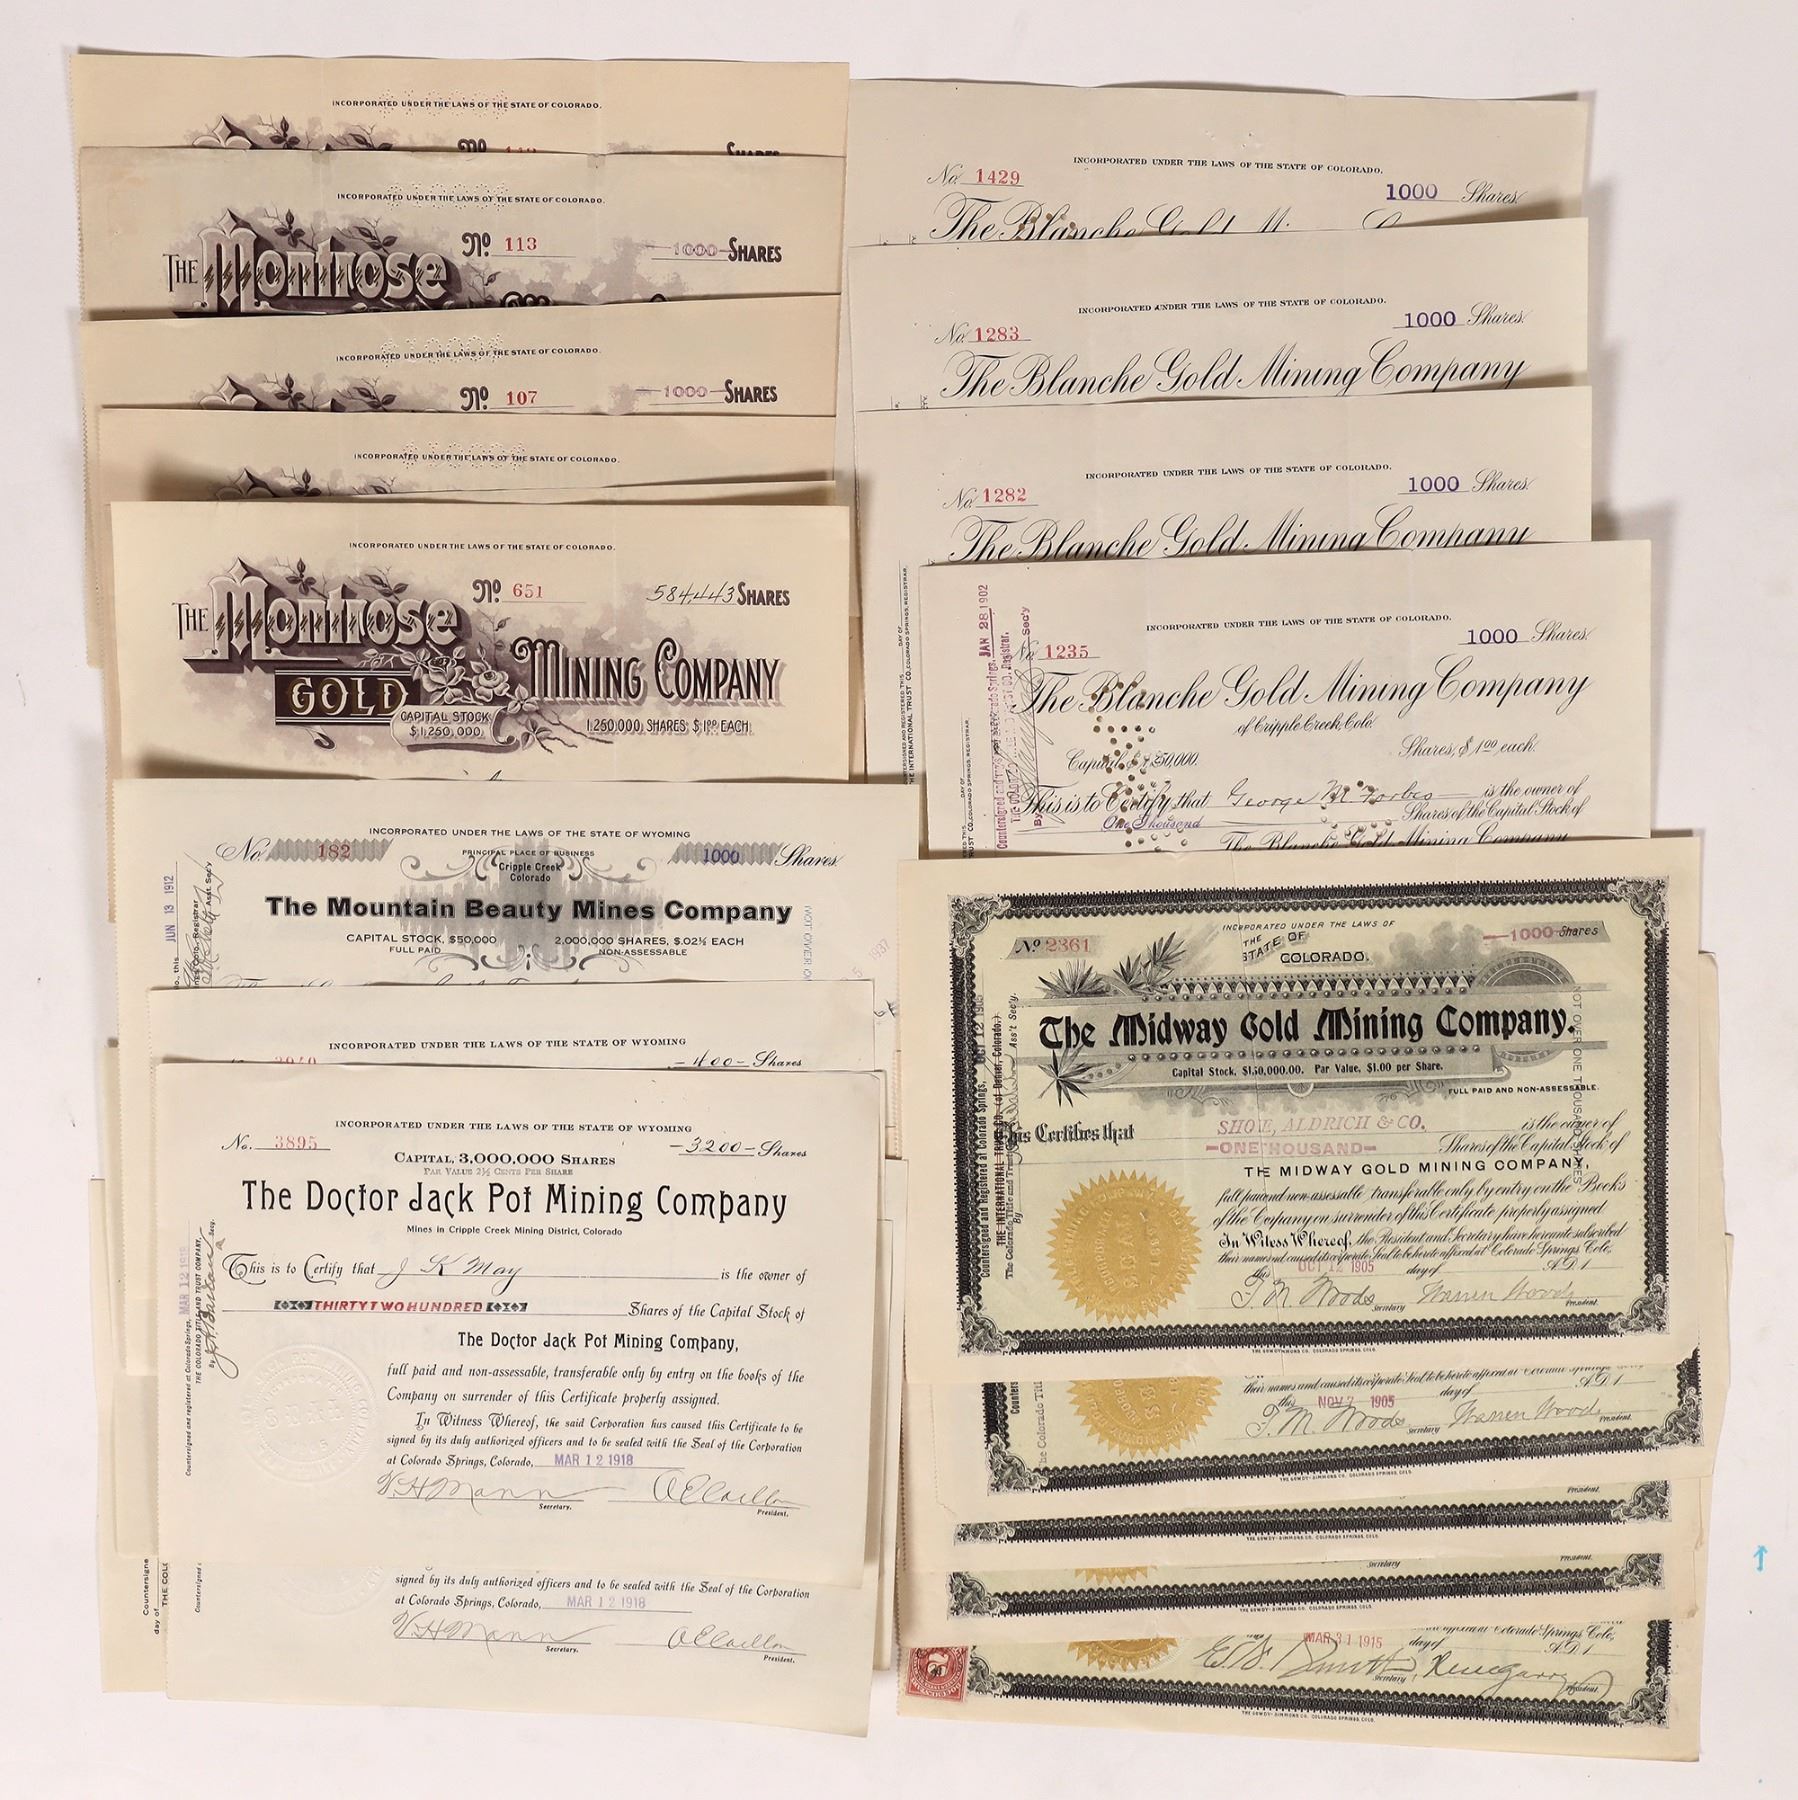 INCORPORATED UNDER THE LAWS OF THE STATE OF COLORADO.
No
SHARES
INCORPORATED UNDER THE LAWS OF THE STATE OF COLORADO.
THE Montrose
No 113
1000 SHARES
INCORPORATED UNDER THE LAWS OF THE STATE OF COLORADO.
No 107
1000 SHARES
INCORPORATED UNDER THE LAWS OF THE STATE OF COLORADO.
INCORPORATED UNDER THE LAWS OF THE STATE OF COLORADO.
No 651
584,443 SHARES
THE Montrose
GOLD MINING COMPANY
CAPITAL STOCK
$1,250,000.
1,250,000 SHARES $1.00 EACH.
INCORPORATED UNDER THE LAWS OF THE STATE OF WYOMING
No. 182
PRINCIPAL PLACE OF BUSINESS
Cripple Creek
Colorado
1000 Shares
The Mountain Beauty Mines Company
CAPITAL STOCK, $50,000
FULL PAID
2,000,000 SHARES, $.02½ EACH
NON-ASSESSABLE
JUN 13 1912
INCORPORATED UNDER THE LAWS OF THE STATE OF WYOMING
-400- Shares
INCORPORATED UNDER THE LAWS OF THE STATE OF WYOMING
No. 3895
-3200- Shares
CAPITAL, 3,000,000 SHARES
PAR VALUE 2½ CENTS PER SHARE
The Doctor Jack Pot Mining Company
Mines in Cripple Creek Mining District, Colorado
This is to Certify that J K May is the owner of
THIRTY TWO HUNDRED Shares of the Capital Stock of
The Doctor Jack Pot Mining Company,
full paid and non-assessable, transferable only by entry on the books of the
Company on surrender of this Certificate properly assigned.
In Witness Whereof, the said Corporation has caused this Certificate to be
signed by its duly authorized officers and to be sealed with the Seal of the Corporation
at Colorado Springs, Colorado, MAR 12 1918
Secretary.
President.
Countersigned and registered at Colorado Springs, MAR 12 1918
THE COLORADO TITLE AND TRUST COMPANY,
signed by its duly authorized officers and to be sealed with the Seal of the Corporation
at Colorado Springs, Colorado, MAR 12 1918
Secretary.
President.
INCORPORATED UNDER THE LAWS OF THE STATE OF COLORADO.
No. 1429
1000 Shares.
The Blanche
INCORPORATED UNDER THE LAWS OF THE STATE OF COLORADO.
No. 1283
1000 Shares.
The Blanche Gold Mining Company
INCORPORATED UNDER THE LAWS OF THE STATE OF COLORADO.
No. 1282
1000 Shares.
The Blanche Gold Mining Company
INCORPORATED UNDER THE LAWS OF THE STATE OF COLORADO.
No. 1235
1000 Shares.
The Blanche Gold Mining Company
of Cripple Creek, Colo.
Capital $1,250,000.
Shares, $1.00 each.
This is to Certify that George M. Forbes is the owner of
One Thousand Shares of the Capital Stock of
The Blanche Gold Mining Company
JAN 28 1902
No 2361
INCORPORATED UNDER THE LAWS OF
THE STATE OF
COLORADO.
-1000- Shares
The Midway Gold Mining Company.
Capital Stock, $1,50,000.00. Par Value, $1.00 per Share.
FULL PAID AND NON-ASSESSABLE.
NOT OVER ONE THOUSAND SHARES
This Certifies that SHOVE, ALDRICH & CO. is the owner of
-ONE THOUSAND- Shares of the Capital Stock of
THE MIDWAY GOLD MINING COMPANY,
full paid and non-assessable, transferable only by entry on the Books
of the Company on surrender of this Certificate properly assigned
In Witness Whereof, the President and Secretary have hereunto subscribed
their names and caused its corporate Seal to be hereto affixed at Colorado Springs, Colo.,
this OCT 12 1905 day of A.D. 1
Secretary
President.
THE GOWDY-SIMMONS CO. COLORADO SPRINGS, COLO.
their names and caused its corporate Seal to be hereto affixed at Colorado Springs
this NOV 7 1905 day of A.D. 1
Secretary
President.
THE GOWDY-SIMMONS CO. COLORADO SPRINGS, COLO.
President.
THE GOWDY-SIMMONS CO. COLORADO SPRINGS, COLO.
Secretary
President.
THE GOWDY-SIMMONS CO. COLORADO SPRINGS, COLO.
MAR 31 1915 day of A.D. 1
Secretary
President.
THE GOWDY-SIMMONS CO. COLORADO SPRINGS, COLO.